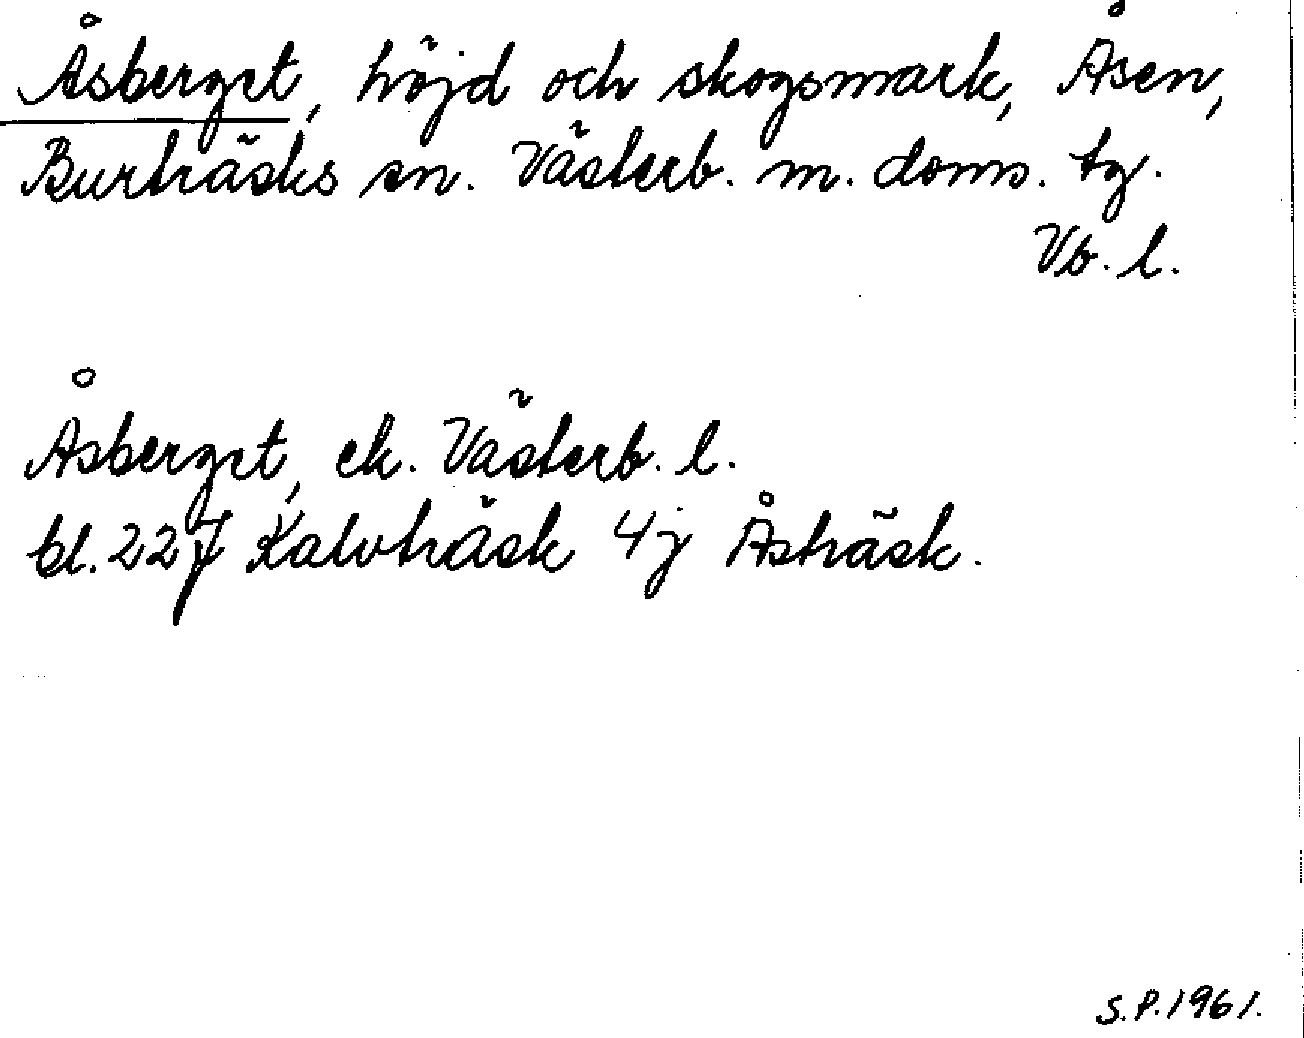 Åsberget, höjd och skogsmark, Åsen,
Burträsks sn. Västerb. m. doms. tg.
Vb. l.
Åsberget, ek. Västerb. l.
bl. 227 Kalvträsk 4j Åsträsk.
S.P.1961.